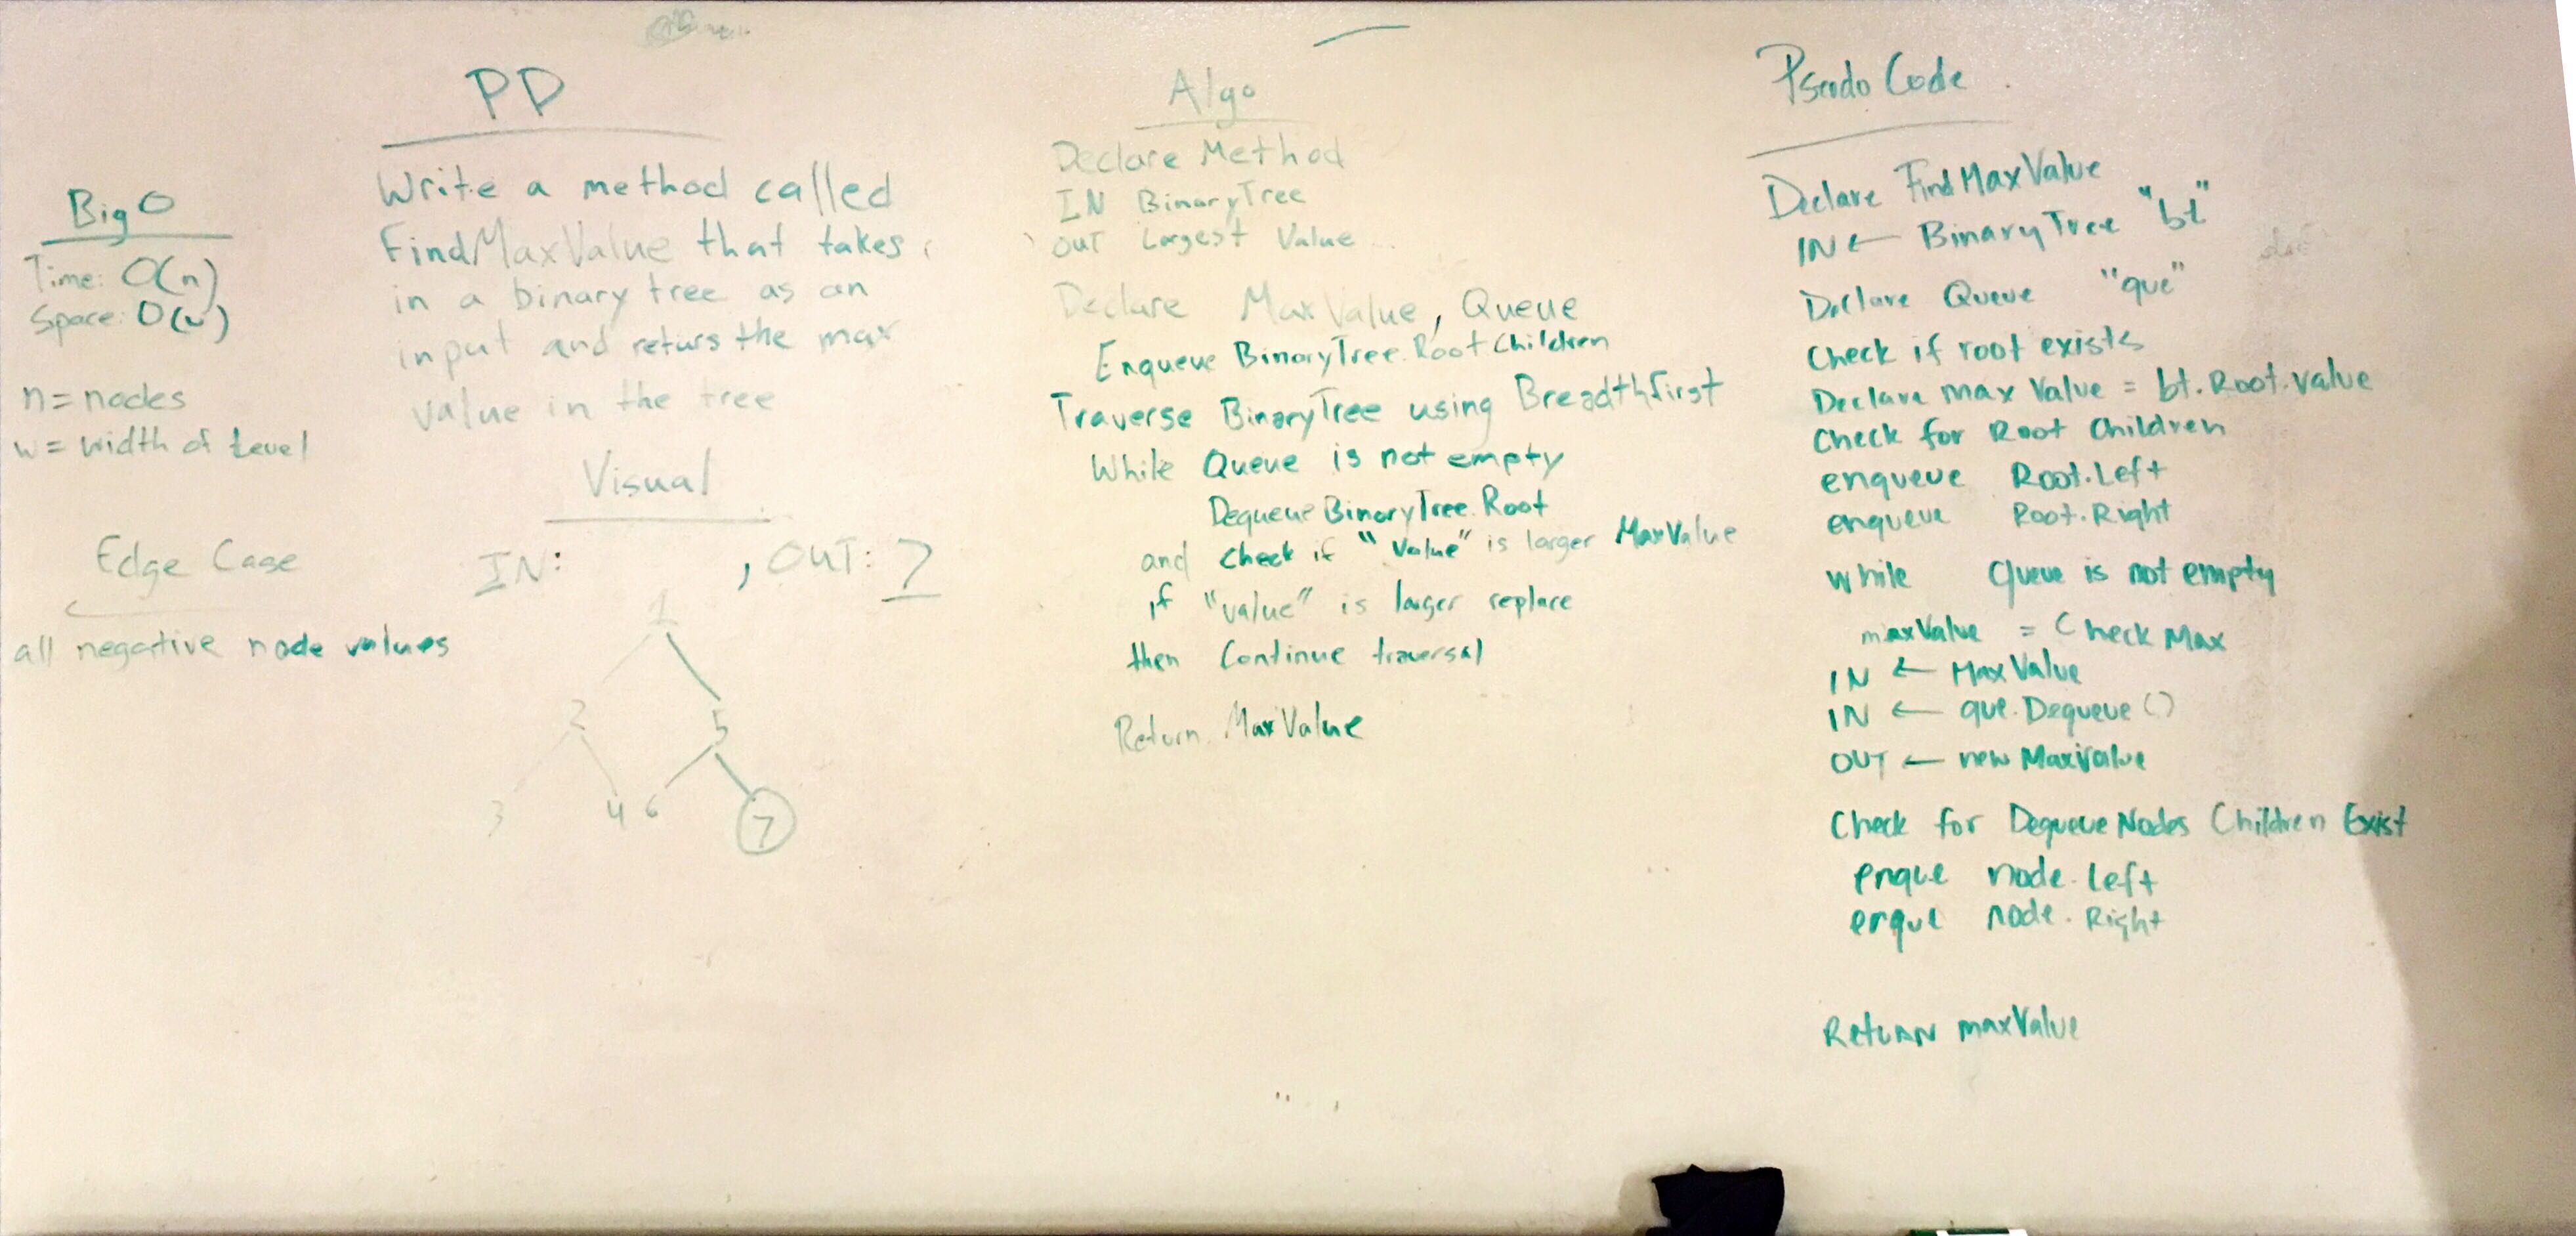 Big O
Time: O(n)
Space: O(w)
n = nodes
w = width of Level
Edge Case
all negative node values
PD
Write a method called
FindMaxValue that takes
in a binary tree as an
input and returs the max
value in the tree
Visual
IN: , OUT: 7
1
2 5
3 4 6 7
Algo
Declare Method
IN BinaryTree
OUT Largest Value
Declare MaxValue, Queue
Enqueue BinaryTree.Root Children
Traverse BinaryTree using Breadthfirst
While Queue is not empty
Dequeue BinaryTree.Root
and check if "Value" is larger MaxValue
if "value" is larger replace
then Continue traversal
Return MaxValue
Pseudo Code
Declare FindMaxValue
IN ← BinaryTree "bt"
Declare Queue "que"
Check if root exists
Declare max Value = bt.Root.value
Check for Root Children
enqueue Root.Left
enqueue Root.Right
while Queue is not empty
maxValue = Check Max
IN ← MaxValue
IN ← que.Dequeue()
OUT ← new MaxValue
Check for Dequeue Nodes Children Exist
enque node.Left
enque node.Right
Return maxValue